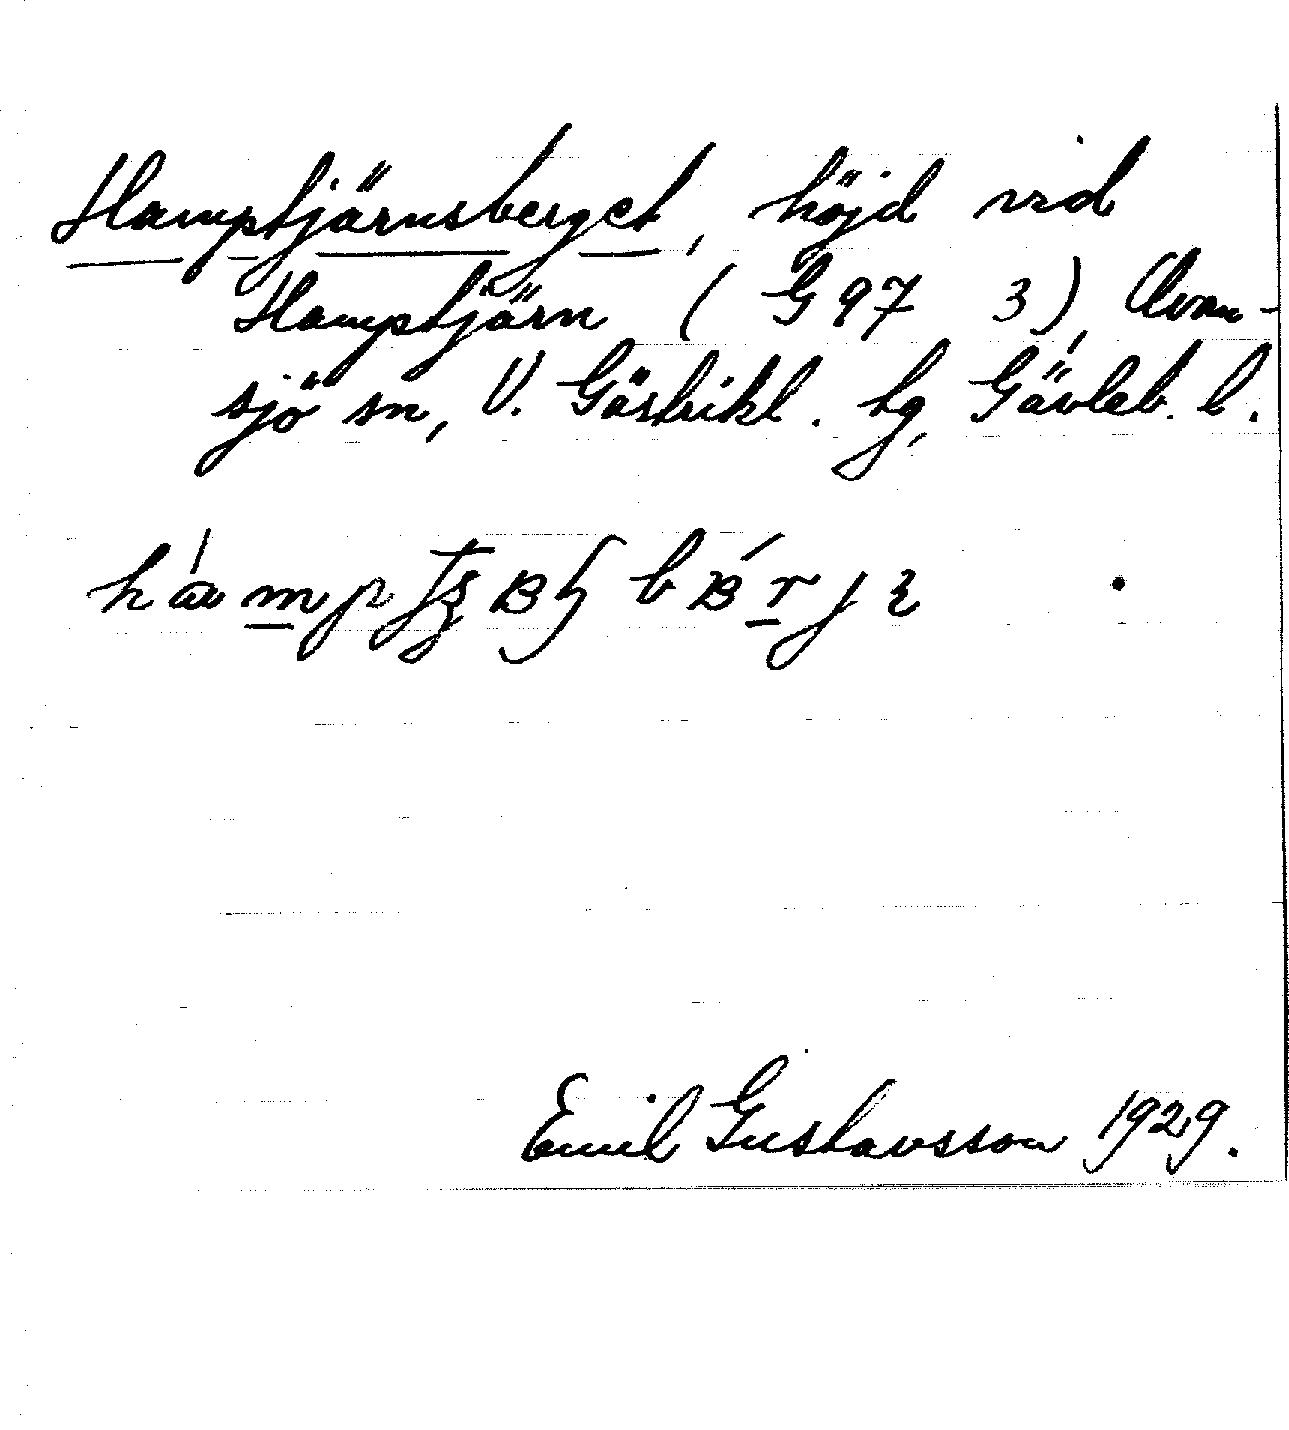 Hamptjärnsberget, höjd vid
Hamptjärn (G 97 3), Ovan-
sjö sn, V. Gästrikl. tg, Gävleb. l.
Emil Gustavsson 1929.